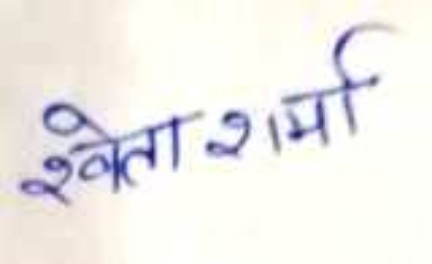 श्वेता शर्मा